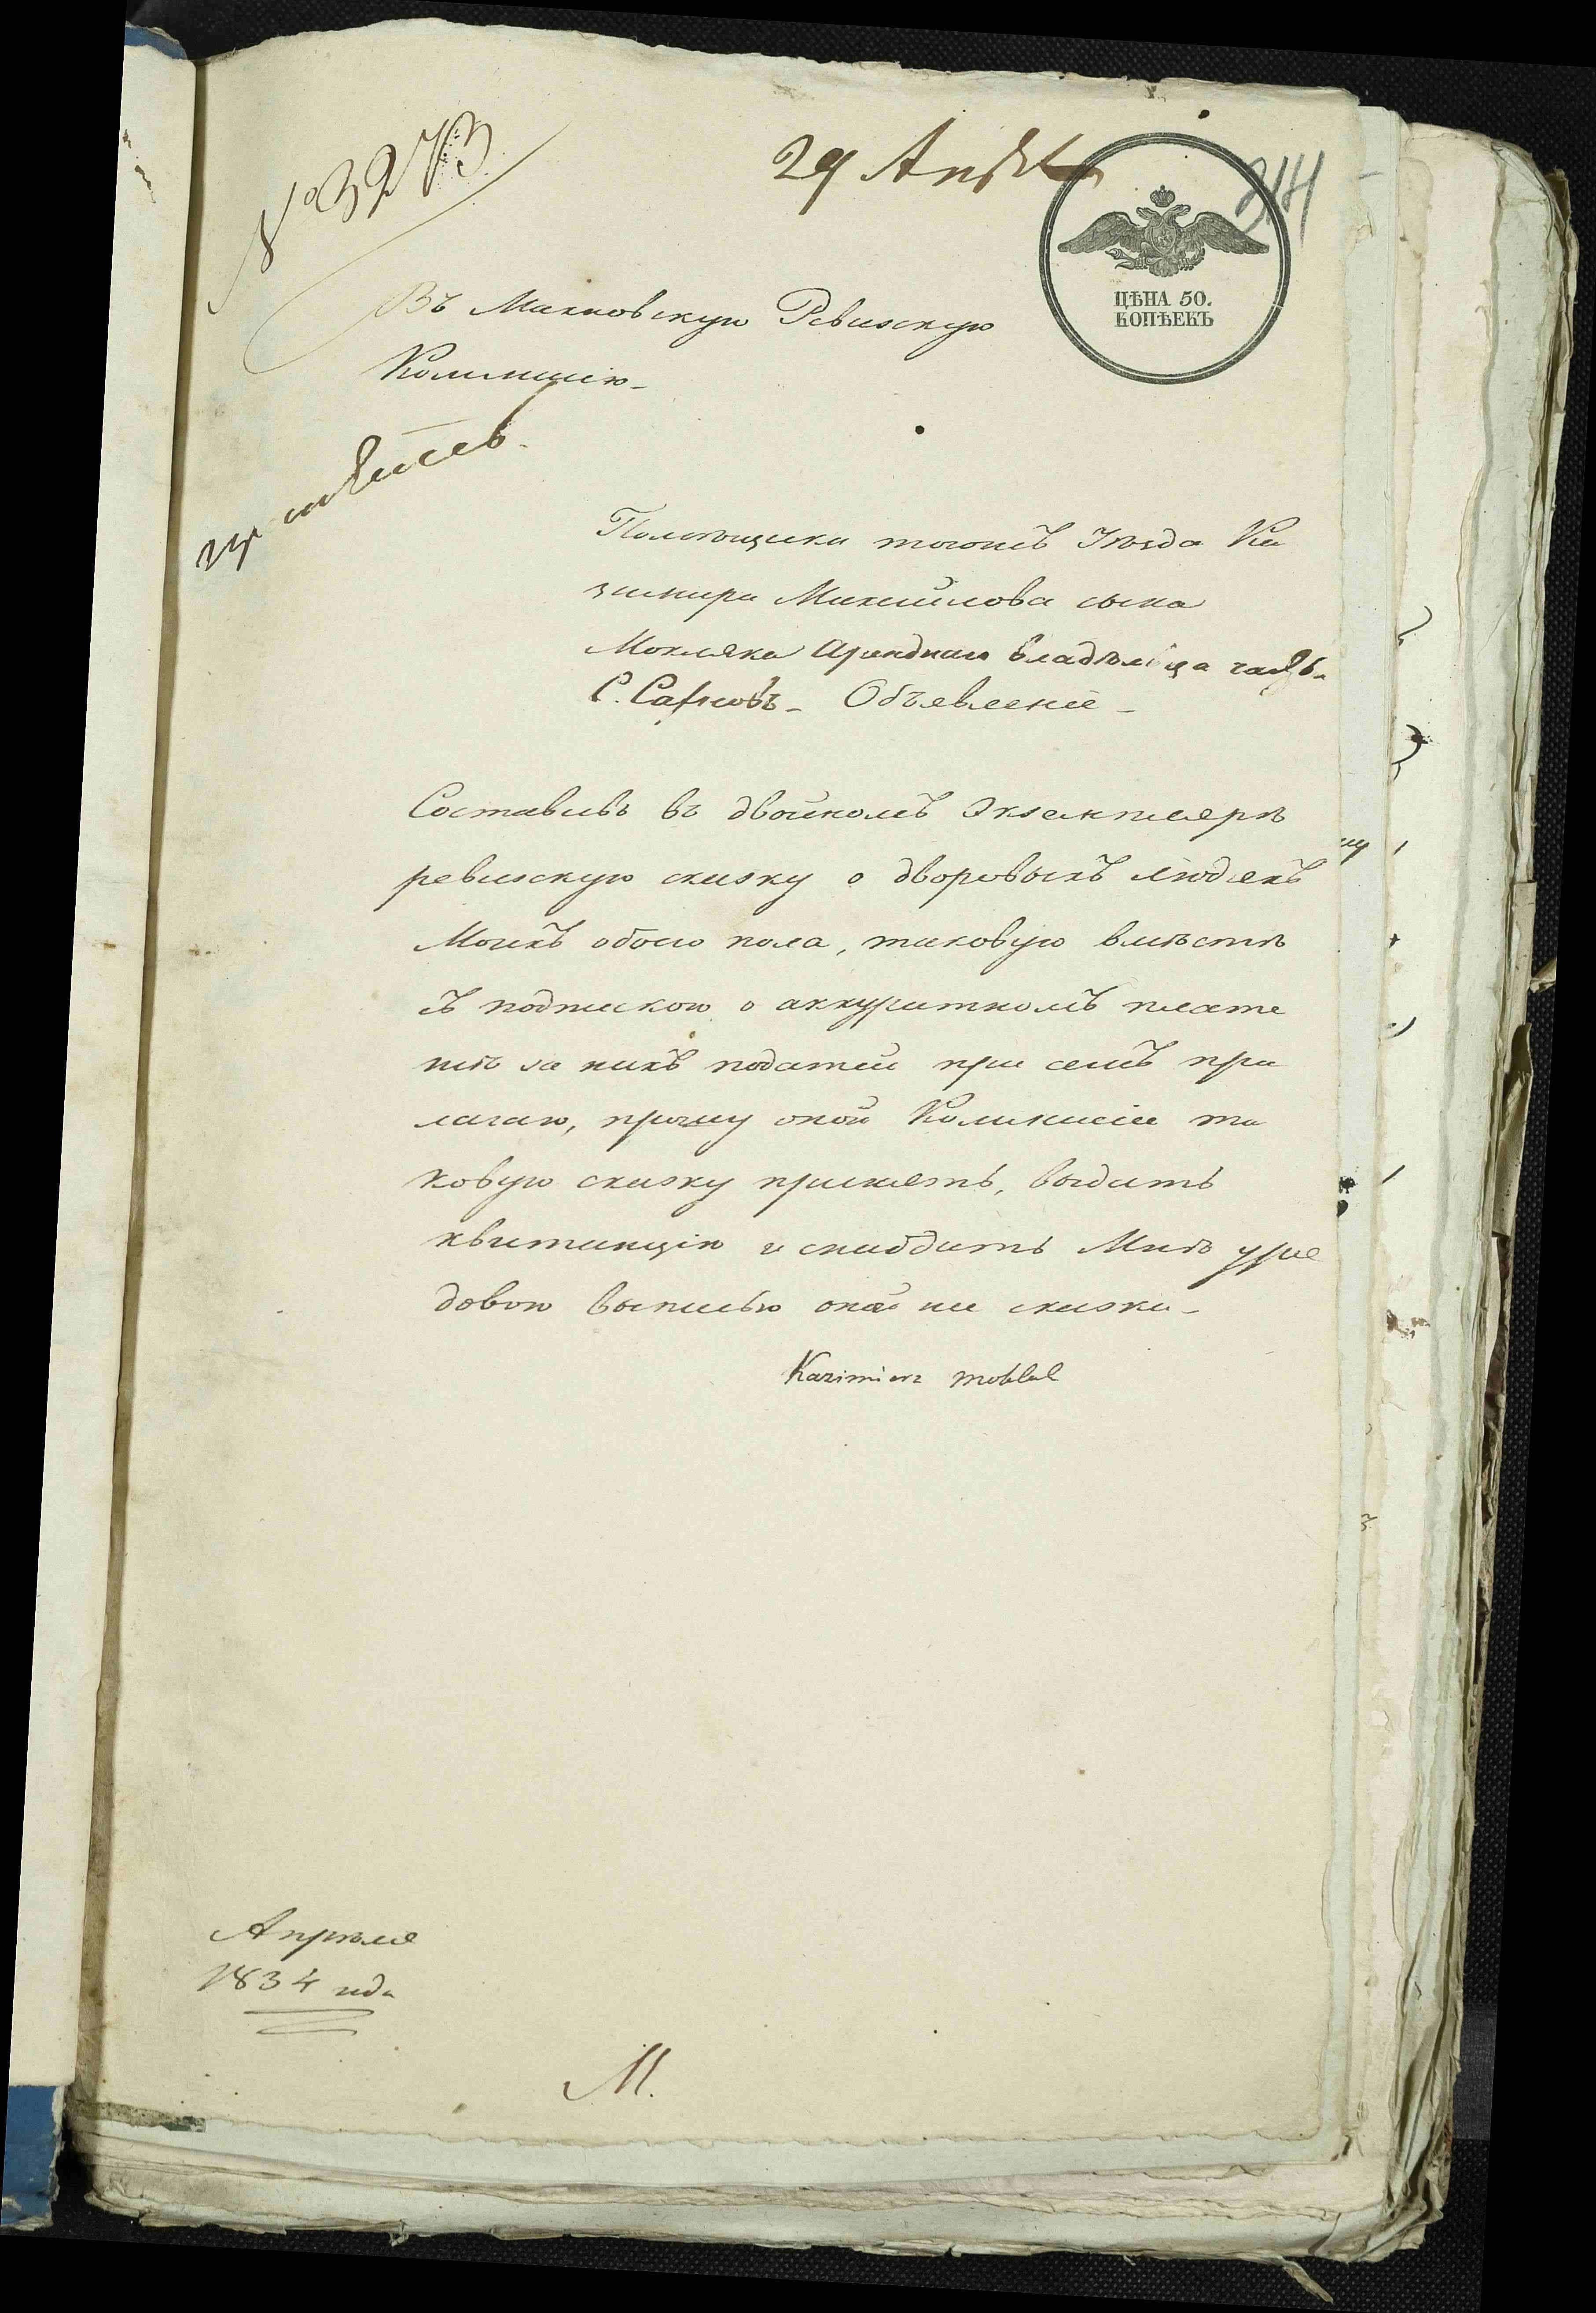 № 3273
29 Апрѣля
314
ЦѢНА 50.
КОПѢЕКЪ
Въ Махновскую Ревизскую
Коммисію
Помѣщика тогожъ Уѣзда Ка
зимира Михайлова сына
Мокляка Ариднаго владѣльца части
С. Одъявленіе
Составивъ въ двойномъ Экземпляръ
ревизскую сказку о дворовыхъ людяхъ
Моихъ обоего пола, таковую вмѣстѣ
съ подпискою о аккуратномъ плате
жѣ за нихъ податей при семъ при
лагаю, прошу оной Коммисіи та
ковую сказку принять, выдать
квитанцію и снабдить Мнѣ уря
довою выписью оной же сказки
Kazimierz Moklak
Апрѣля
1834 года
М.